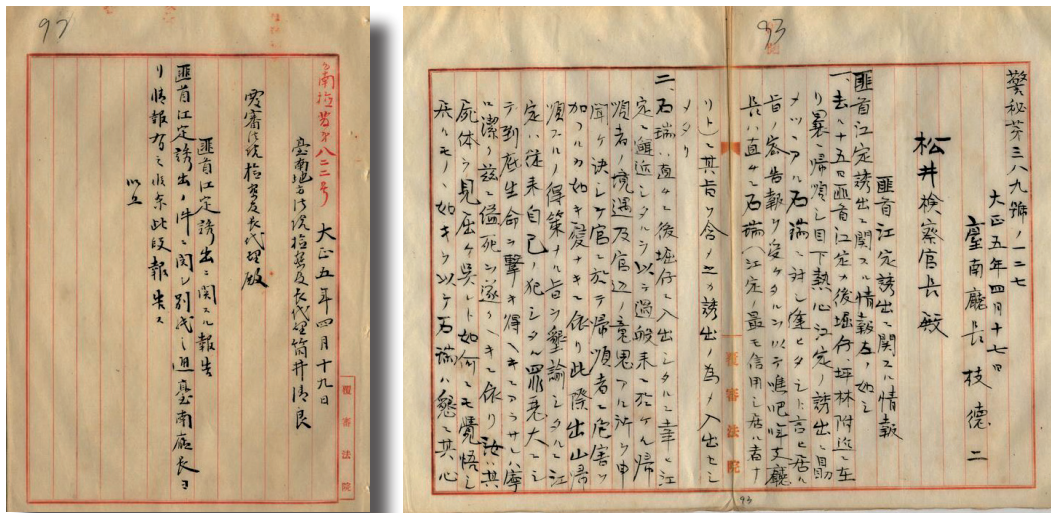 92
南檢芳第八二二号 大正五年四月十九日
臺南地方法院檢察官長代理筒井清良
覆審法院檢察官長代理殿
匪首江定誘出ニ関スル報告
匪首江定誘出ノ件ニ関シ別紙之通臺南廳長ヨ
リ情報有之候条此段報告ス
以上
覆審法院
93
警秘芳三八九號ノ一二七
大正五年四月十七日
臺南廳長枝德二
松井檢察官長殿
匪首江定誘出ニ関スル情報
匪首江定誘出ニ関スル情報左ノ如シ
一、去ル十五日匪首江定カ後堀仔坪林附近ニ在
リ曩ニ帰順シ目下熱心江定ノ誘出ニ勗
メツヽアル石瑞ニ対シ逢ヒタシト言ヒ居ル
旨ノ密告報ヲ姿タルヲ以テ噍吧哖支廳
長ハ直チニ石瑞(江定ノ最モ信用シ居ル者ナ
リト)ニ其旨ヲ含メ之カ誘出ノ為メ入山セシ
メタリ
二、石瑞ハ直チニ後堀仔ニ入山シタルニ幸ニ江
定ニ邂逅シタルヲ以テ過般来ニ於ケル帰
順者ノ境遇及官辺ノ意思アル所ヲ申
聞ケ決シテ官ニ於テ帰順者ニ危害ヲ
加フルカ如キ復ナキニ依リ此際出山帰
順スルノ得策ナル旨ヲ懇諭シタルニ江
定ハ従来自己ノ犯シタル罪悪大ニシ
テ到底生命ヲ繋キ得ヘキニアラサレハ寧
ロ潔ク茲ニ縊死ヲ遂クヘキニ依リ汝ハ其
死体ヲ見届ケ呉レト如何ニモ覚悟シ
居ルモノヽ如キヲ以テ石瑞ハ懇ニ其ノ心
覆審法院
93